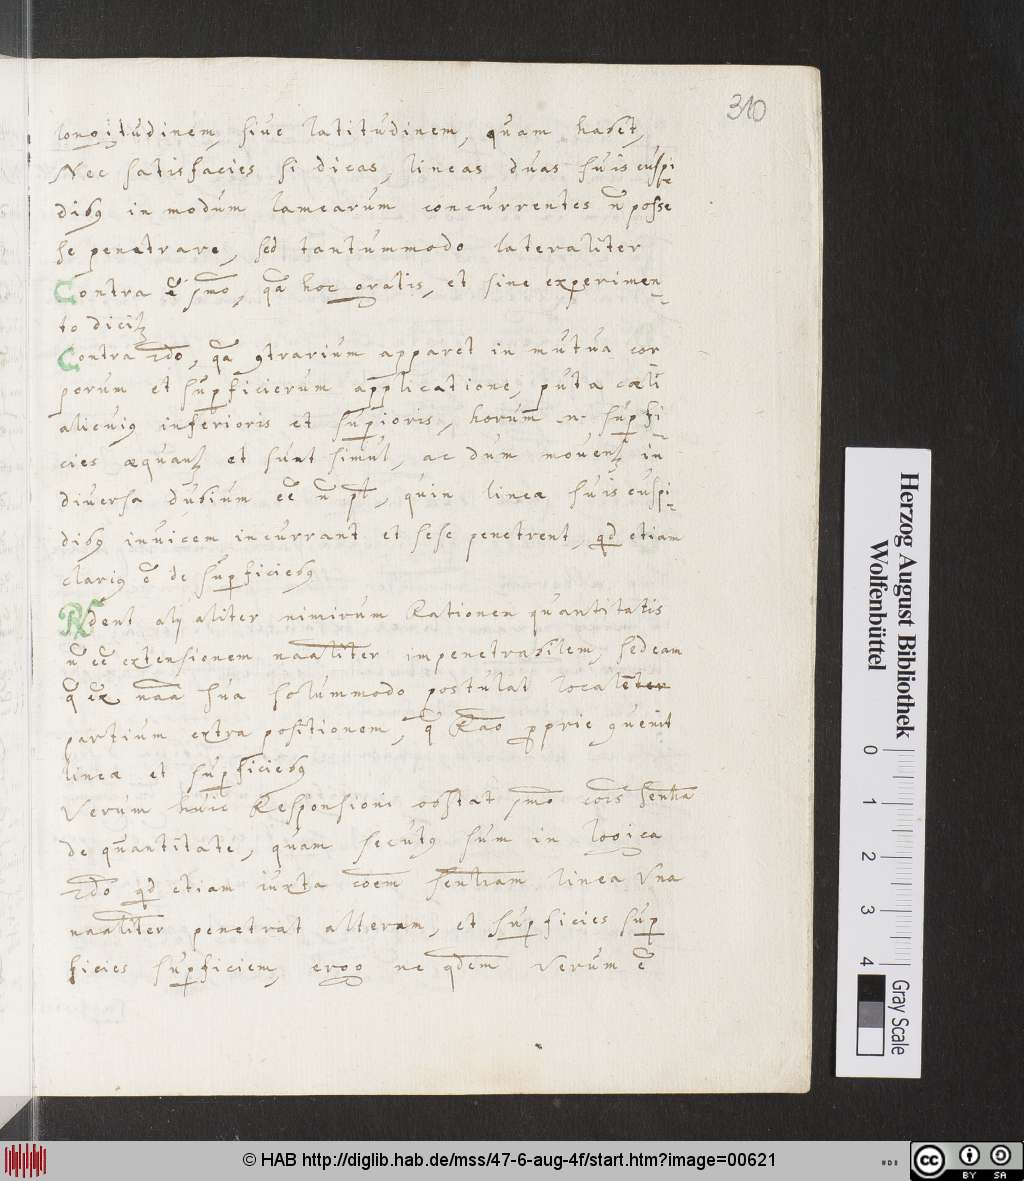 310
longitudinem, siue latitudinem, quam habet,
Nec satisfacies si dicas, lineas duas suis cuspi
dibꝰ in modum lamearum concurrentes n̄ posse
se penetrare, sed tantummodo lateraliter
Contra ē pͫo, qa hoc gratis, et sine experimen-
to dicitꝛ
Contra 2do, qa ꝯtrarium apparet in mutua cor
porum et suꝑficierum applicatione, puta cœli
alicuiꝰ inferioris et suꝑioris, horum .n. suꝑfi
cies æquantꝛ et sunt simul, ac dum mouentꝛ in
diuersa dubium eē n̄ pt, quin lineæ suis cuspi-
dibꝰ inuicem incurrant et sese penetrent, qd etiam
clariꝰ ē de suꝑficiebꝰ
Rndent alij aliter nimirum Rationem quantitatis
n̄ eē extensionem naaliter impenetrabilem, sed eam
q̄ ex naa sua solummodo postulat localem
partium extra positionem, q̄ Rao ꝓprie ꝯuenit
lineæ et suꝑficiebꝰ
Verum huic Responsioni obstat pͫo cōis sentia
de quantitate, quam secutꝰ sum in logica
2do qd etiam iuxta cōem sentiam linea vna
naaliter penetrat alteram, et suꝑficies suꝑ
ficies suꝑficiem, ergo ne qdem verum ē
Herzog August Bibliothek
Wolfenbüttel
0 1 2 3 4
Gray Scale
© HAB http://diglib.hab.de/mss/47-6-aug-4f/start.htm?image=00621
cc BY SA